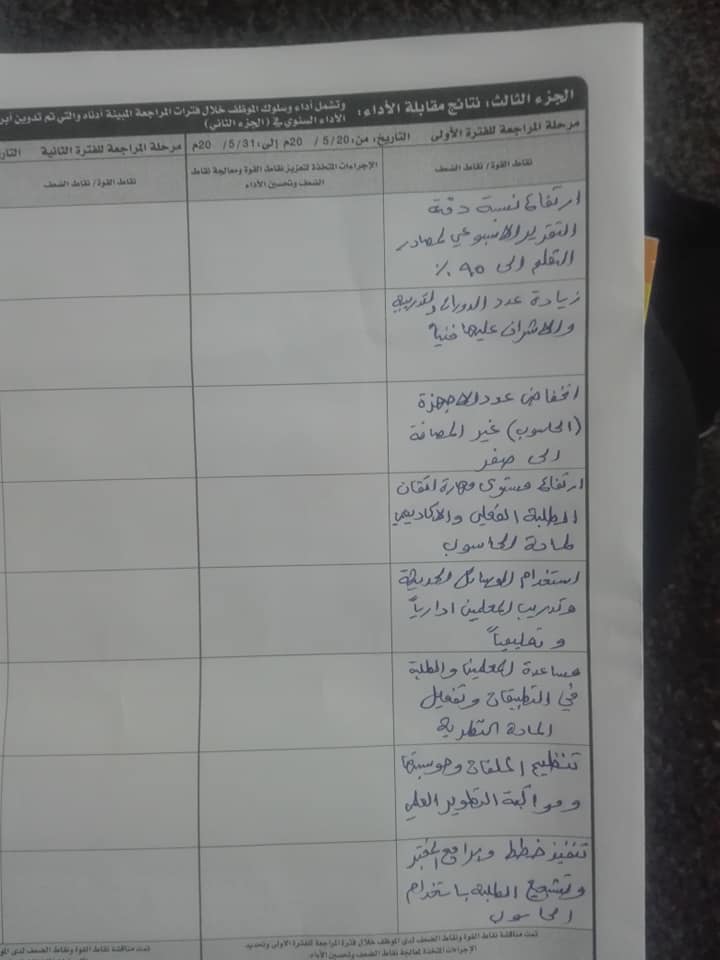 الجزء الثالث: نتائج مقابلة الأداء: وتشمل أداء وسلوك الموظف خلال فترات المراجعة المبينة أدناه والتي تم تدوين أبر
الأداء السنوي في (الجزء الثاني)
مرحلة المراجعة للفترة الأولى التاريخ: من: 5/20 /20م إلى: 5/31 /20م
مرحلة المراجعة للفترة الثانية التار
نقاط القوة/ نقاط الضعف
الإجراءات المتخذة لتعزيز نقاط القوة ومعالجة نقاط
الضعف وتحسين الأداء
نقاط القوة/ نقاط الضعف
ارتفاع نسبة دقة
التقرير الاسبوعي لمصادر
التعلم الى ٩٥ ٪
زيادة عدد الدورات التدريبية
والاشراف عليها فنياً
انخفاض عدد الاجهزة
(الحاسوب) غير المصانة
الى صفر
ارتفاع مستوى مهارة اتقان
الطلبة الفعلي والاكاديمي
لمادة الحاسوب
استخدام الوسائل الحديثة
وتدريب المعلمين ادارياً
و تعليمياً
مساعدة المعلمين والطلبة
في التطبيقات وتفعيل
المادة النظرية
تنظيم الملفات وحوسبتها
ومواكبة التطوير العلمي
تنفيذ خطط وبرامج المختبر
وتشجيع الطلبة باستخدام
الحاسوب
تمت مناقشة نقاط القوة ونقاط الضعف لدى الموظف خلال فترة المراجعة للفترة الأولى وتحديد
الإجراءات المتخذة لمعالجة نقاط الضعف وتحسين الأداء
تمت مناقشة نقاط القوة ونقاط الضعف لدى المو